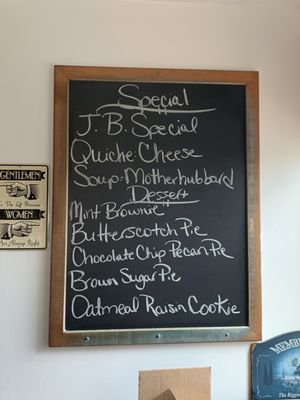 Special
J.B. Special
Quiche: Cheese
Soup: Motherhubbard
Dessert
Mint Brownie
Butterscotch Pie
Chocolate Chip Pecan Pie
Brown Sugar Pie
Oatmeal Raisin Cookie
GENTLEMEN
To The Left Because
WOMEN
Are Always Right
MEMB
The Bigges